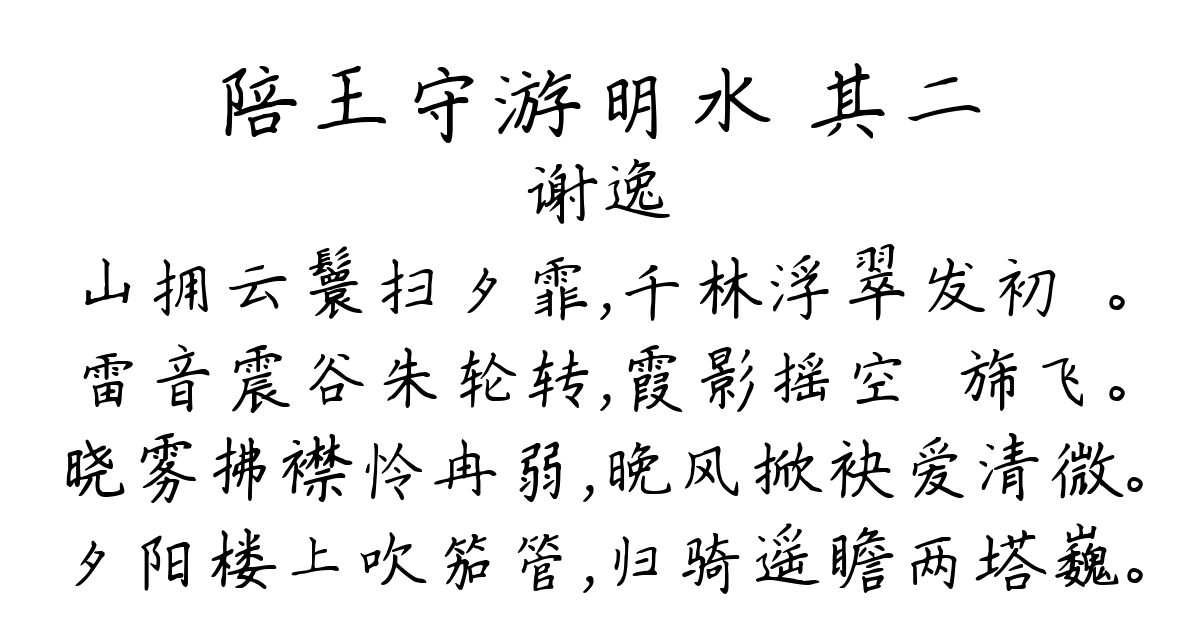 陪王守游明水 其二
谢逸
山拥云鬟扫夕霏,千林浮翠发初 。
雷音震谷朱轮转,霞影摇空 旆飞。
晓雾拂襟怜冉弱,晚风掀袂爱清微。
夕阳楼上吹笳管,归骑遥瞻两塔巍。